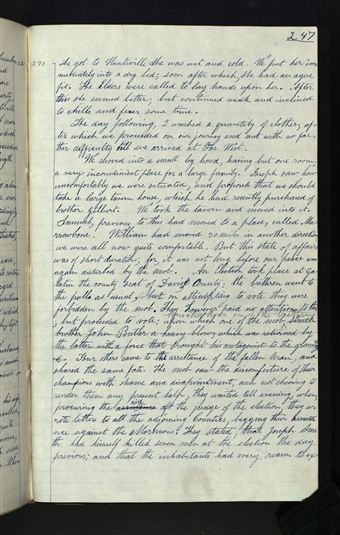 247
she got to Huntsville she was wet and cold. We put her im
mediately into a dry bed; soon after which, she had an ague
fit. The Elders were called to lay hands upon her. After
this she seemed better; but continued weak and inclined
to chills and fever some time.
The day following, I washed a quantity of clothes; af-
ter which we proceeded on our journey and met with no far-
ther difficulty till we arrived at Far West.
We moved into a small log house, having but one room;
a very inconvenient place for a large family. Joseph saw how
uncomfortably we were situated, and proposed that we should
take a large tavern house, which he had recently purchased of
brother Gilbert. We took the tavern and moved into it.
Samuel, previous to this had moved to a place, called Ma-
rowbone. William had moved 30 miles in another direction
we were all now quite comfortable. But this state of affairs
was of short duration, for it was not long before our peace was
again disturbed by the mob. An election took place at Ga-
latin the county seat of Davies County; the brethren went to
the polls as usual, but on attempting to vote they were
forbidden by the mob. They however paid no attention to this,
but proceeded to vote; upon which one of the mob struck
brother John Butler a heavy blow which was returned by
the latter with a force that brought his antagonist to the ground
Four other came to the assistance of the fallen man, and
shared the same fate. The mob saw the discomfiture of their
champions with shame and disappointment, and not choosing to
render them any present help, they waited till evening, when
procuring the assistance of the judge of the election, they w
rote letter to all the adjoining Counties, begging their assista
nce against the Mormons. They stated, that Joseph Smi
th had himself killed seven men at the election the day
previous; and that the inhabitants had every reason to ex-